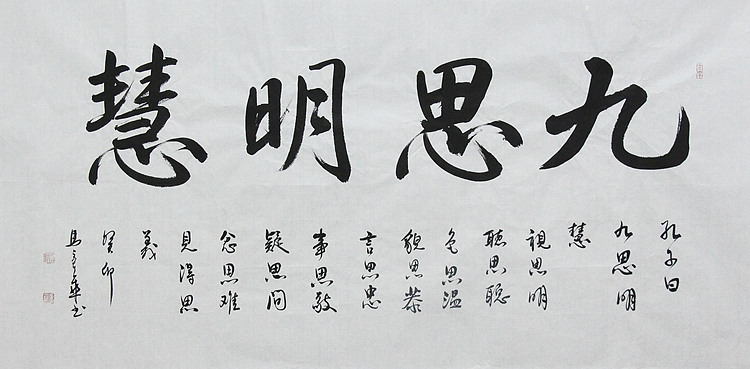 九思明慧
孔子曰
九思明
慧
視思明
聽思聰
色思温
貌思恭
言思忠
事思敬
疑思问
忿思难
見得思
義
癸卯
华书